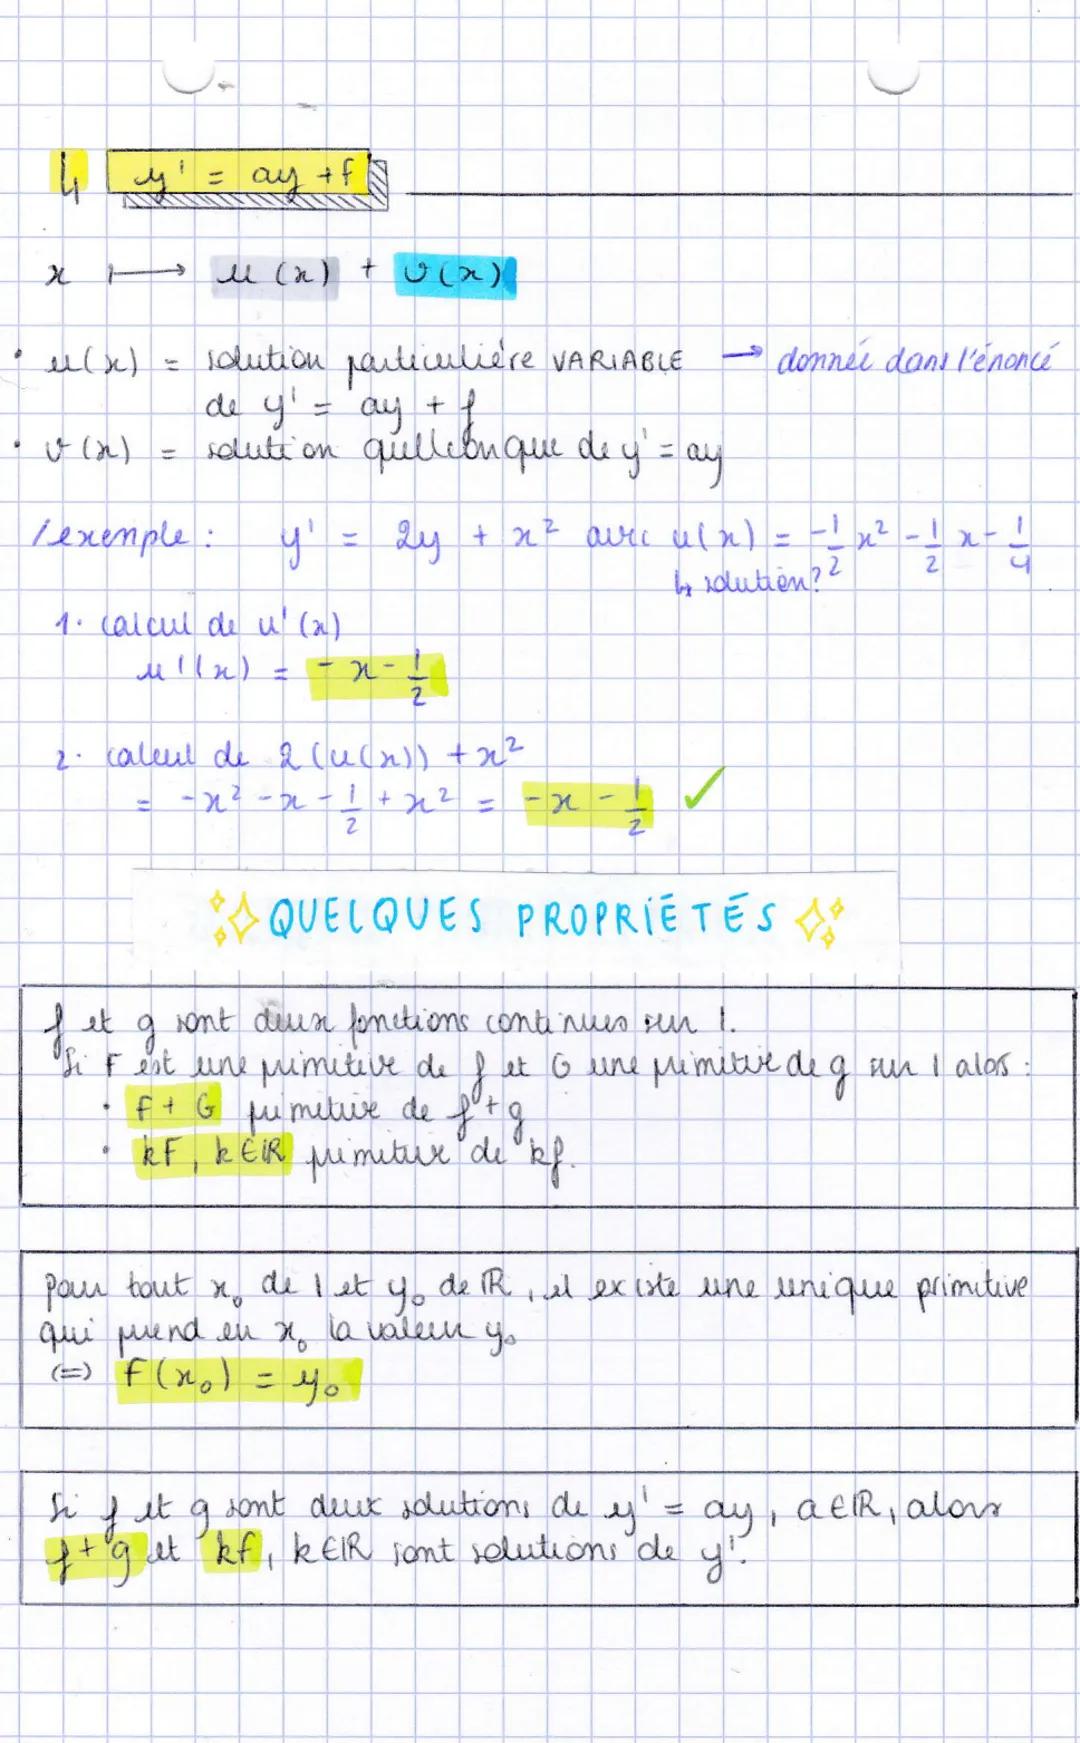 ↳ y' = ay + f
x ⟼ u(x) + v(x)
• u(x) = solution particulière VARIABLE → donnée dans l'énoncé
de y' = ay + f
• v(x) = solution quelconque de y' = ay
/exemple : y' = 2y + x² avec u(x) = -1/2 x² - 1/2 x - 1/4
↳ solution?
1. calcul de u'(x)
u'(x) = -x - 1/2
2. calcul de 2(u(x)) + x²
= -x² - x - 1/2 + x² = -x - 1/2 ✓
QUELQUES PROPRIÉTÉS
f et g sont deux fonctions continues sur I.
Si F est une primitive de f et G une primitive de g sur I alors :
• F + G primitive de f + g
• kF, k∈ℝ primitive de kf.
Pour tout x₀ de I et y₀ de ℝ, il existe une unique primitive
qui prend en x₀ la valeur y₀
(=) F(x₀) = y₀
Si f et g sont deux solutions de y' = ay, a∈ℝ, alors
f + g et kf, k∈ℝ sont solutions de y'.